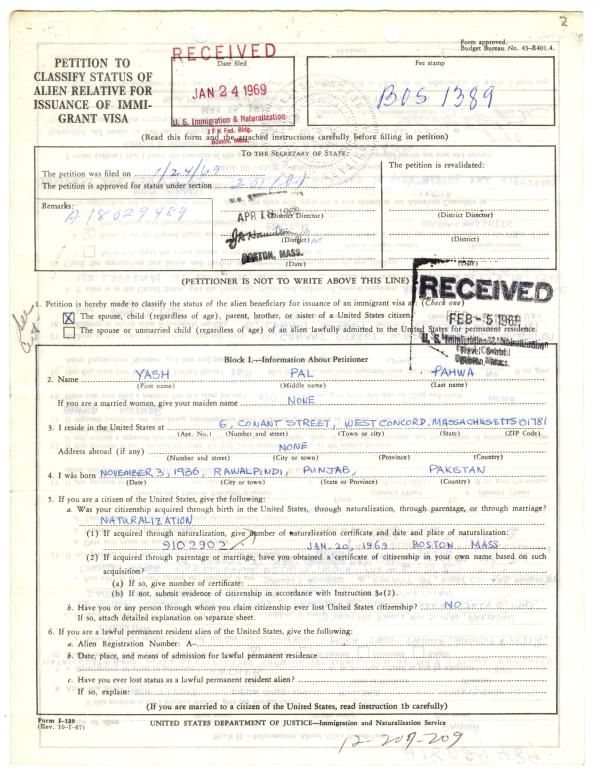 2
Form approved.
Budget Bureau No. 43-R401.4.
PETITION TO
CLASSIFY STATUS OF
ALIEN RELATIVE FOR
ISSUANCE OF IMMI-
GRANT VISA
RECEIVED
Date filed
JAN 24 1969
U. S. Immigration & Naturalization
J F K Fed. Bldg.
Boston, Mass.
Fee stamp
BOS 1389
(Read this form and the attached instructions carefully before filling in petition)
TO THE SECRETARY OF STATE:
The petition was filed on 1/24/69
The petition is approved for status under section
Remarks:
A18029489
APR
(District Director)
(District)
BOSTON, MASS.
(Date)
The petition is revalidated:
(District Director)
(District)
(Date)
(PETITIONER IS NOT TO WRITE ABOVE THIS LINE)
RECEIVED
FEB -5 1969
U. S. Immigration & Naturalization
Travel Control
Boston, Mass.
1. Petition is hereby made to classify the status of the alien beneficiary for issuance of an immigrant visa as: (Check one)
X The spouse, child (regardless of age), parent, brother, or sister of a United States citizen
The spouse or unmarried child (regardless of age) of an alien lawfully admitted to the United States for permanent residence.
Block I.—Information About Petitioner
2. Name YASH PAL PAHWA
(First name) (Middle name) (Last name)
If you are a married woman, give your maiden name NONE
3. I reside in the United States at 6, CONANT STREET, WEST CONCORD, MASSACHUSETTS 01781
(Apt. No.) (Number and street) (Town or city) (State) (ZIP Code)
Address abroad (if any) NONE
(Number and street) (City or town) (Province) (Country)
4. I was born NOVEMBER 3, 1936, RAWALPINDI, PUNJAB, PAKISTAN
(Date) (City or town) (State or Province) (Country)
5. If you are a citizen of the United States, give the following:
a. Was your citizenship acquired through birth in the United States, through naturalization, through parentage, or through marriage?
NATURALIZATION
(1) If acquired through naturalization, give number of naturalization certificate and date and place of naturalization:
9102902 JAN. 20, 1969 BOSTON MASS
(2) If acquired through parentage or marriage, have you obtained a certificate of citizenship in your own name based on such
acquisition?
(a) If so, give number of certificate:
(b) If not, submit evidence of citizenship in accordance with Instruction 3a(2).
b. Have you or any person through whom you claim citizenship ever lost United States citizenship? NO
If so, attach detailed explanation on separate sheet.
6. If you are a lawful permanent resident alien of the United States, give the following:
a. Alien Registration Number: A–
b. Date, place, and means of admission for lawful permanent residence
c. Have you ever lost status as a lawful permanent resident alien?
If so, explain:
(If you are married to a citizen of the United States, read instruction 1b carefully)
Form I-130
(Rev. 10-1-67)
UNITED STATES DEPARTMENT OF JUSTICE—Immigration and Naturalization Service
12-207-209